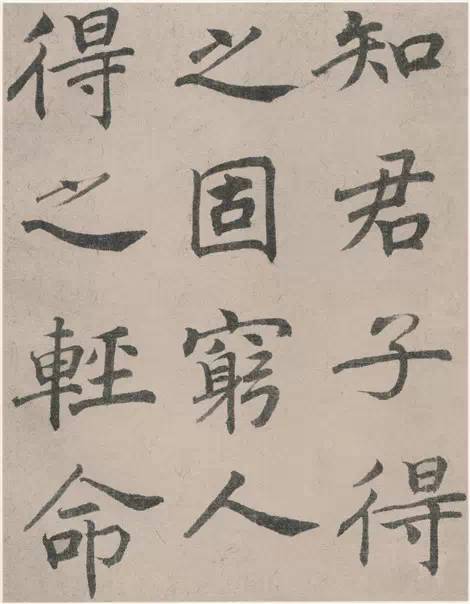 知君子得
之固窮人
得之輕命